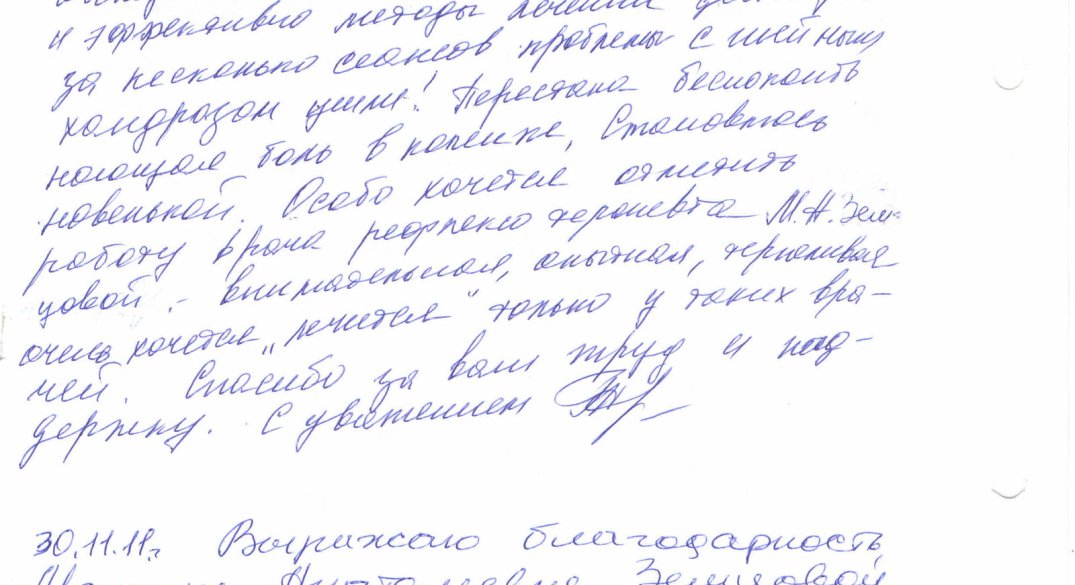 и эффективно методы лечения
за несколько сеансов проблемы с шейным
хондрозом ушли! Перестала беспокоить
ноющая боль в колене, Становлюсь
новенькой. Особо хочется отметить
работу врача рефлексотерапевта М.Н. Зем-
цовой - внимательная, опытная, терпеливая
очень хочется „лечится" только у таких вра-
чей. Спасибо за ваш труд и под-
держку. С уважением
30.11.11г. Выражаю благодарность
Земцовой